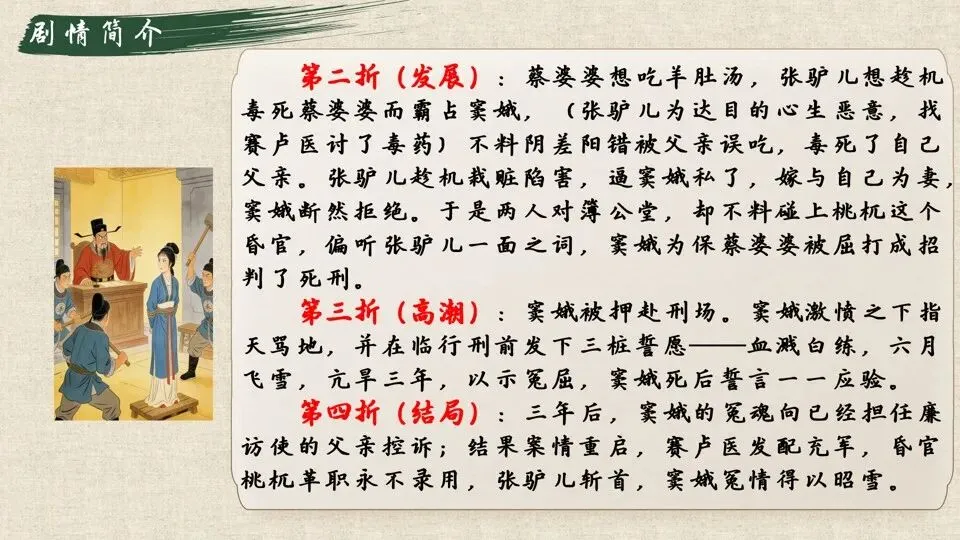 剧情简介
第二折（发展）：蔡婆婆想吃羊肚汤，张驴儿想趁机
毒死蔡婆婆而霸占窦娥，（张驴儿为达目的心生恶意，找
赛卢医讨了毒药）不料阴差阳错被父亲误吃，毒死了自己
父亲。张驴儿趁机栽赃陷害，逼窦娥私了，嫁与自己为妻，
窦娥断然拒绝。于是两人对簿公堂，却不料碰上桃杌这个
昏官，偏听张驴儿一面之词，窦娥为保蔡婆婆被屈打成招
判了死刑。
第三折（高潮）：窦娥被押赴刑场。窦娥激愤之下指
天骂地，并在临行刑前发下三桩誓愿——血溅白练，六月
飞雪，亢旱三年，以示冤屈，窦娥死后誓言一一应验。
第四折（结局）：三年后，窦娥的冤魂向已经担任廉
访使的父亲控诉；结果案情重启，赛卢医发配充军，昏官
桃杌革职永不录用，张驴儿斩首，窦娥冤情得以昭雪。